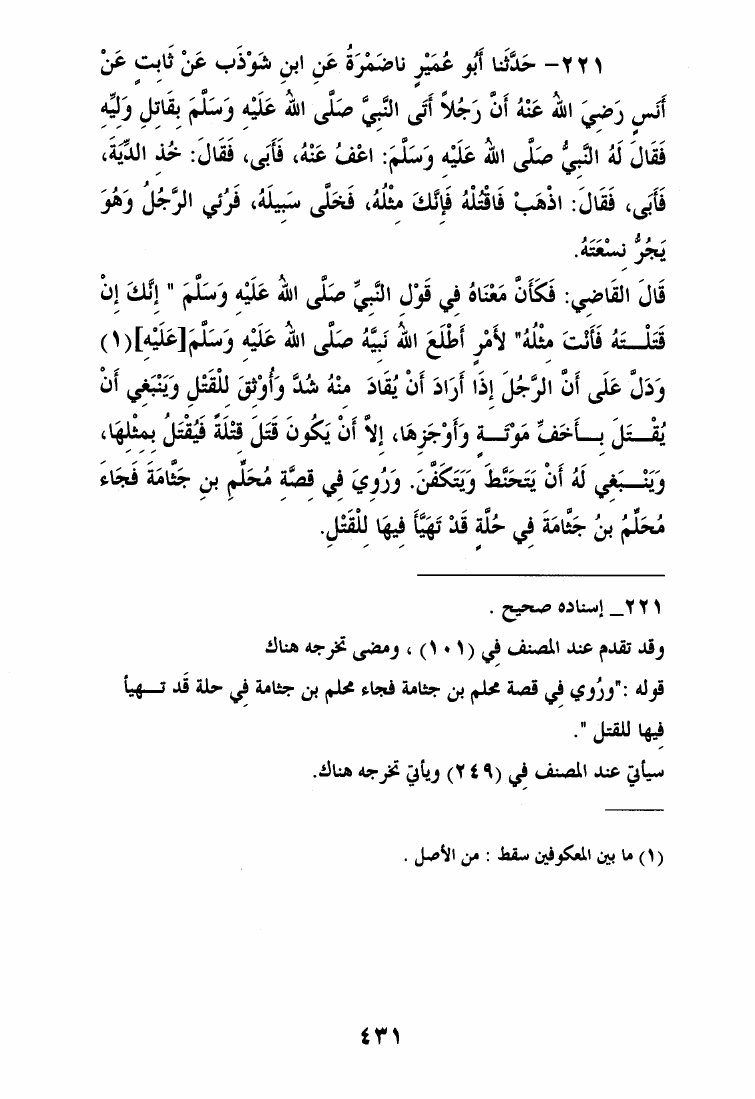 ٢٢١- حَدَّثَنا أَبُو عُمَيْرٍ ناضَمْرَةُ عَنِ ابنِ شَوْذَب عَنْ ثَابِتٍ عَنْ
أَنَسٍ رَضِيَ اللهُ عَنْهُ أَنَّ رَجُلاً أَتَى النَّبِيَّ صَلَّى اللهُ عَلَيْهِ وَسَلَّمَ بِقَاتِلِ وَلِيِّهِ
فَقَالَ لَهُ النَّبِيُّ صَلَّى اللهُ عَلَيْهِ وَسَلَّمَ: اعْفُ عَنْهُ، فَأَبَى، فَقَالَ: خُذِ الدِّيَةَ،
فَأَبَى، فَقَالَ: اذْهَبْ فَاقْتُلْهُ فَإِنَّكَ مِثْلُهُ، فَخَلَّى سَبِيلَهُ، فَرُئِي الرَّجُلُ وَهُوَ
يَجُرُّ نِسْعَتَهُ.
قَالَ القَاضِي: فَكَأَنَّ مَعْنَاهُ فِي قَوْلِ النَّبِيِّ صَلَّى اللهُ عَلَيْهِ وَسَلَّمَ " إِنَّكَ إِنْ
قَتَلْـــتَهُ فَأَنْتَ مِثْلُهُ" لأَمْرٍ أَطْلَعَ اللهُ نَبِيَّهُ صَلَّى اللهُ عَلَيْهِ وَسَلَّمَ[عَلَيْهِ](١)
وَدَلَّ عَلَى أَنَّ الرَّجُلَ إِذَا أَرَادَ أَنْ يُقَادَ مِنْهُ شُدَّ وَأُوْثِقَ لِلْقَتْلِ وَيَنْبَغِي أَنْ
يُقْـــتَلَ بِـــأَخَفِّ مَوْتَـــةٍ وَأَوْجَزِهَا، إِلاَّ أَنْ يَكُونَ قَتَلَ قِتْلَةً فَيُقْتَلُ بِمِثْلِهَا،
وَيَنْـــبَغِي لَهُ أَنْ يَتَحَنَّطَ وَيَتَكَفَّنَ. وَرُوِيَ فِي قِصَّةِ مُحَلِّمِ بنِ جَثَّامَةَ فَجَاءَ
مُحَلِّمُ بنُ جَثَّامَةَ فِي حُلَّةٍ قَدْ تَهَيَّأَ فِيهَا لِلْقَتْلِ.
٢٢١_ إسناده صحيح .
وقد تقدم عند المصنف في (١٠١) ، ومضى تخرجه هناك
قوله :"ورُوي في قصة محلم بن جثامة فجاء محلم بن جثامة في حلة قد تـــهيأ
فيها للقتل ".
سيأتي عند المصنف في (٢٤٩) ويأتي تخرجه هناك.
(١) ما بين المعكوفين سقط : من الأصل .
٤٣١